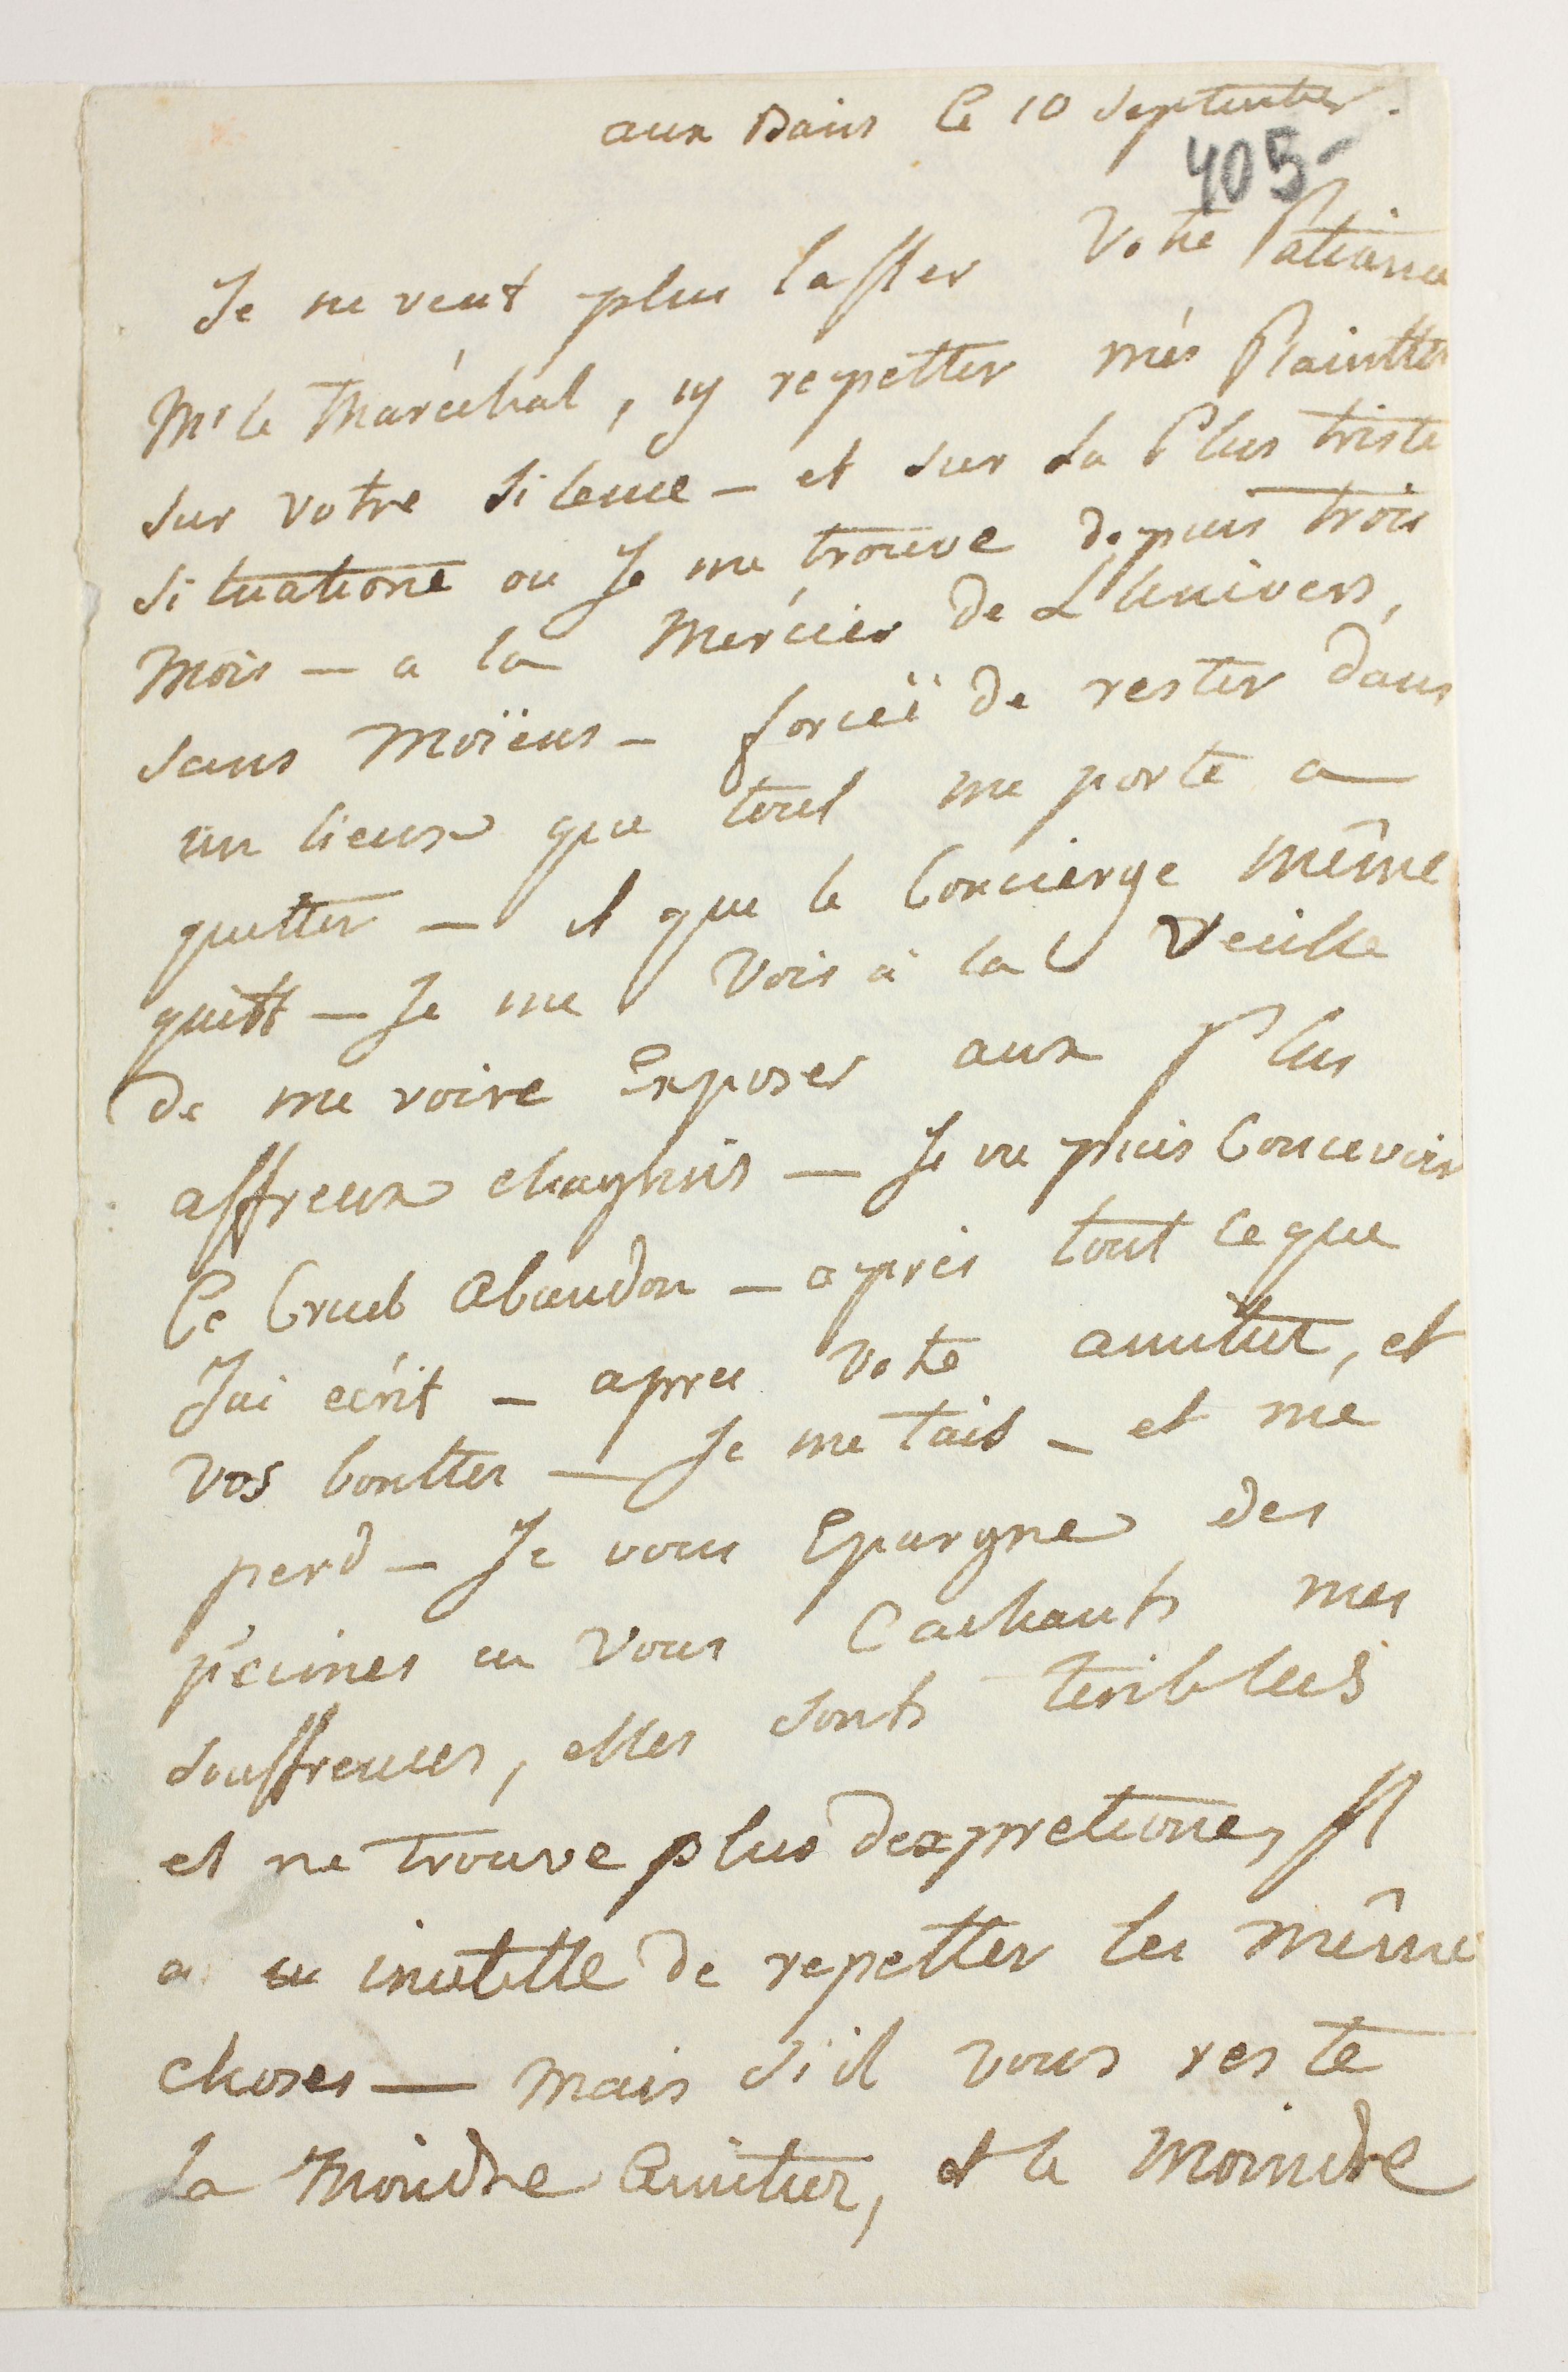 aux Bains le 10 Septembre.
405-
Je ne veut plus lasser Votre Patiance
Mr le Maréchal, ny repetter més Plainttes
sur votre silence – et sur la Plus triste
situatione ou Je me trouve depuis trois
Mois – a la Merciér de L'Univers,
sans Moïens – forcéë de rester dans
un lieux que tout me porte a
quitter – et que le Concierge même
quitt – Je me Vois à la Veille
de me voire Exposer aux Plus
affreux chagrins – Je ne puis Concevoir
Ce Cruel Abandon – après tout ce que
J'ai ecrit – apres Votre amitiér, et
vos bontter – Je me tais – et mé
perd – Je vous Epargne des
peines en Vous Cachants mes
souffrences, elles sonts teribles
et ne trouve plus dexpretione, Il
inutille de repetter les même
choses – Mais s'il vous reste
la Moindre Amitier, et le Moindre